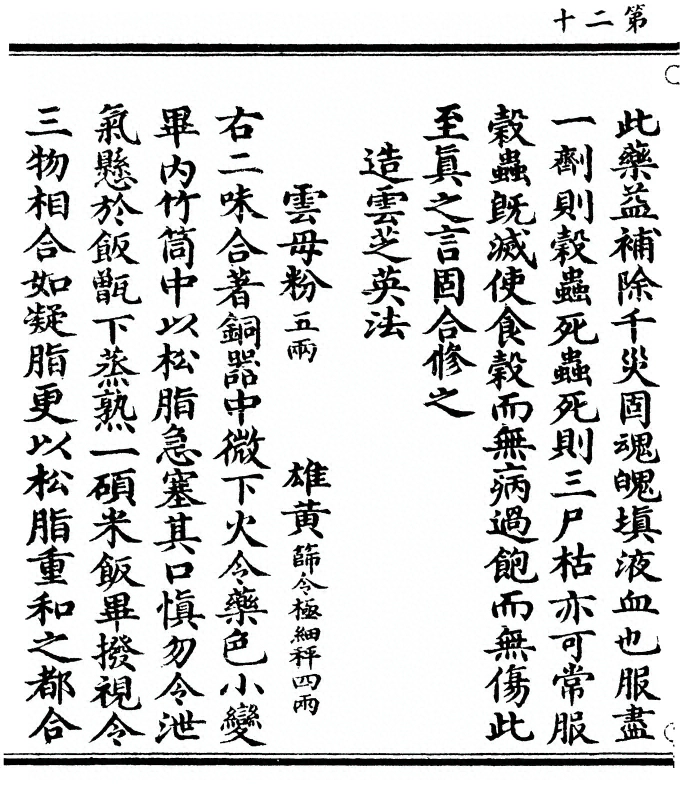 第二十
此藥益補除千災固魂魄塡液血也服盡
一劑則穀蟲死蟲死則三尸枯亦可常服
穀蟲旣滅使食穀而無病過飽而無傷此
至眞之言固合修之
造雲芝英法
雲母粉五兩 雄黃篩令極細秤四兩
右二味合著銅器中微下火令藥色小變
畢內竹筒中以松脂急塞其口愼勿令泄
氣懸於飯甑下蒸熟一碩米飯畢撥視令
三物相合如凝脂更以松脂重和之都合